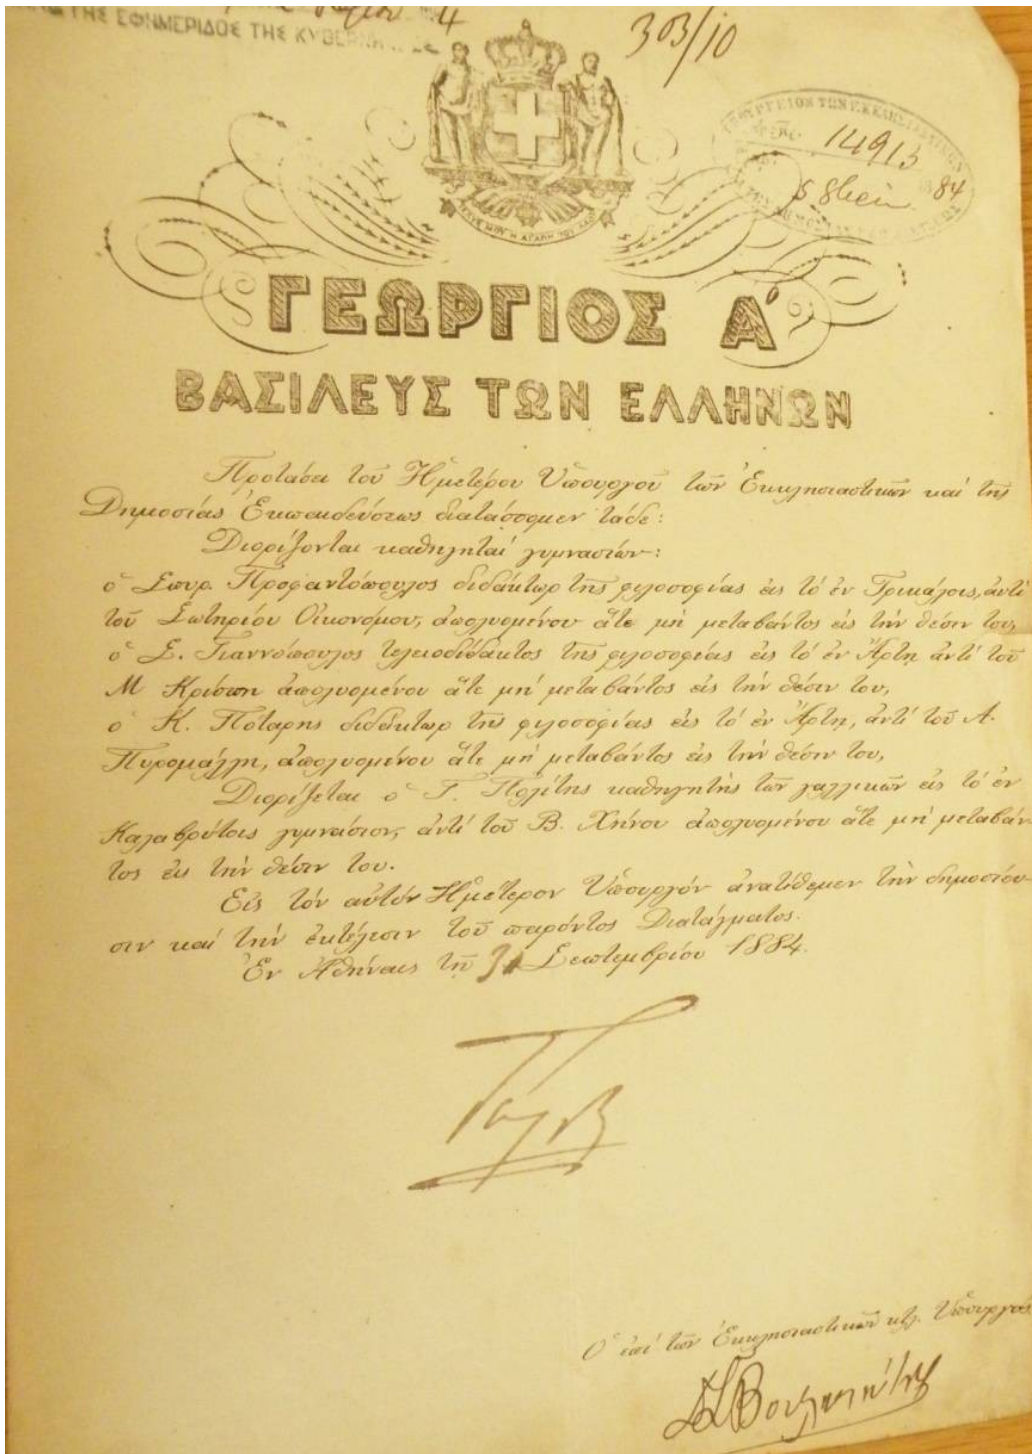 ΤΗΣ ΕΦΗΜΕΡΙΔΟΣ ΤΗΣ
4
303/10
ΥΠΟΥΡΓΕΙΟΝ ΤΩΝ ΕΚΚΛΗΣΙΑΣΤΙΚΩΝ
14913
84
ΙΣΧΥΣ ΜΟΥ Η ΑΓΑΠΗ ΤΟΥ ΛΑΟΥ
ΓΕΩΡΓΙΟΣ Αʹ
ΒΑΣΙΛΕΥΣ ΤΩΝ ΕΛΛΗΝΩΝ
Προτάσει τοῦ Ἡμετέρου Ὑπουργοῦ τῶν Ἐκκλησιαστικῶν καὶ τῆς
Δημοσίας Ἐκπαιδεύσεως διατάσσομεν τάδε:
Διορίζονται καθηγηταὶ γυμνασίων:
ὁ Σπυρ. Προφαντόπουλος διδάκτωρ τῆς φιλοσοφίας εἰς τὸ ἐν Τρικάλοις, ἀντὶ
τοῦ Σωτηρίου Οἰκονόμου, ἀπολυομένου ἅτε μὴ μεταβάντος εἰς τὴν θέσιν του,
ὁ Σ. Γιαννόπουλος τελειοδίδακτος τῆς φιλοσοφίας εἰς τὸ ἐν Ἄρτῃ ἀντὶ τοῦ
Μ Κρίσπη ἀπολυομένου ἅτε μὴ μεταβάντος εἰς τὴν θέσιν του,
ὁ Κ. Πόταρης διδάκτωρ τῆς φιλοσοφίας εἰς τὸ ἐν Ἄρτῃ, ἀντὶ τοῦ Α.
Πυρομάλλη, ἀπολυομένου ἅτε μὴ μεταβάντος εἰς τὴν θέσιν του,
Διορίζεται ὁ Γ. Πολίτης καθηγητὴς τῶν γαλλικῶν εἰς τὸ ἐν
Καλαβρύτοις γυμνάσιον, ἀντὶ τοῦ Β. Χήνου ἀπολυομένου ἅτε μὴ μεταβάν
τος εἰς τὴν θέσιν του.
Εἰς τὸν αὐτὸν Ἡμέτερον Ὑπουργὸν ἀνατίθεμεν τὴν δημοσίευ-
σιν καὶ τὴν ἐκτέλεσιν τοῦ παρόντος Διατάγματος.
Ἐν Ἀθήναις τῇ Σεπτεμβρίου 1884.
Ὁ ἐπὶ τῶν Ἐκκλησιαστικῶν κτλ. Ὑπουργὸς